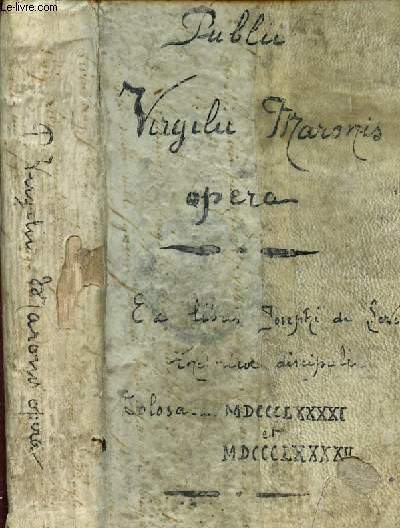 Le-livre.com
Publii
Virgilii Maronis
opera
Ex libris Josephi de
discipuli
Tolosa MDCCCLXXXXI
et
MDCCCLXXXXII
P. Virgilii Maronis opera